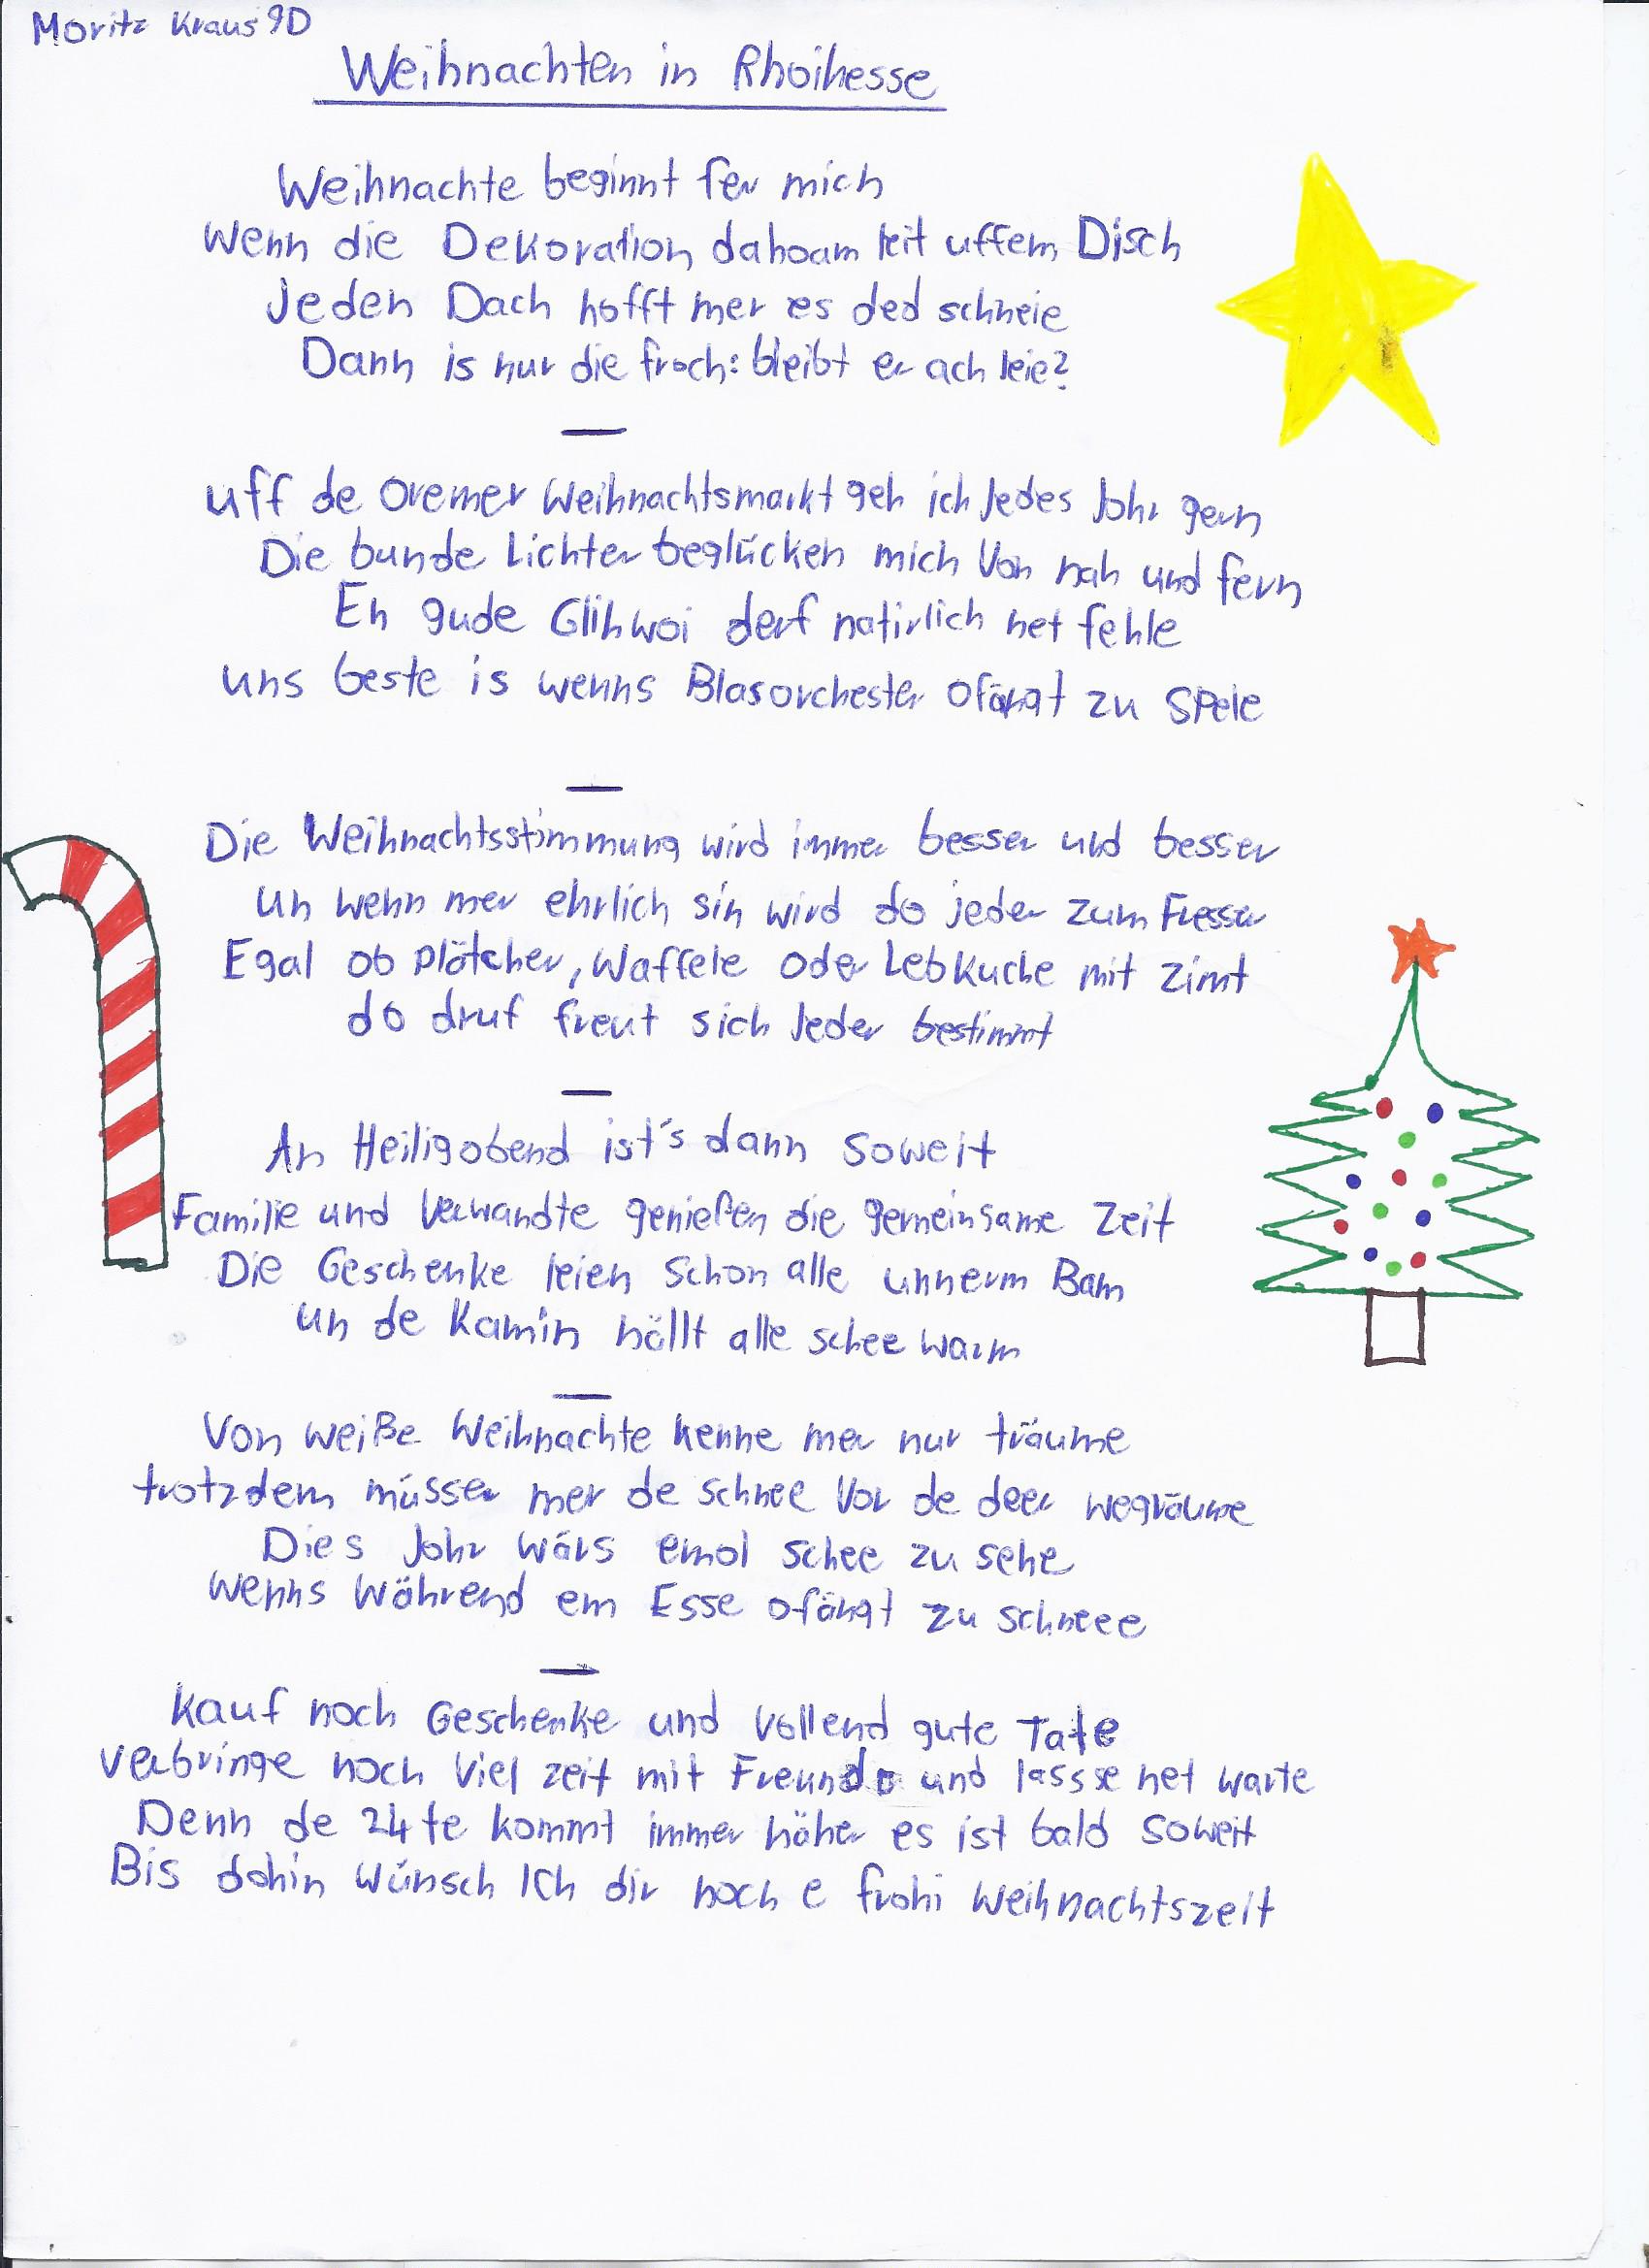 Moritz Kraus 9D
Weihnachten in Rhoihesse
Weihnachte beginnt fer mich
Wenn die Dekoration dahoam leit uffem Disch
Jeden Dach hofft mer es ded schneie
Dann is nur die froch: bleibt er ach leie?
uff de Oremer Weihnachtsmarkt geh ich Jedes Johr gern
Die bunde Lichter beglücken mich Von nah und fern
En gude Glihwoi derf natirlich net fehle
uns beste is wenns Blasorchester ofängt zu Spiele
Die Weihnachtsstimmung wird immer besser und besser
un wenn mer ehrlich sin wird do jeder zum Fresser
Egal ob plätcher, Waffele oder Lebkuche mit Zimt
do druf freut sich Jeder bestimmt
An Heiligobend ist's dann soweit
Familie und Verwandte genießen die gemeinsame Zeit
Die Geschenke leien schon alle unnerm Bam
un de Kamin hällt alle schee warm
Von weiße Weihnachte kenne mer nur träume
trotzdem müsser mer de schnee Vor de deer wegräume
Dies Johr wärs emol schee zu sehe
wenns während em Esse ofängt zu schneee
Kauf noch Geschenke und vollend gute Tate
Verbringe noch Viel zeit mit Freunde und lassse net warte
Denn de 24te kommt immer näher es ist bald soweit
Bis dohin wünsch Ich dir noch e frohi Weihnachtszeit